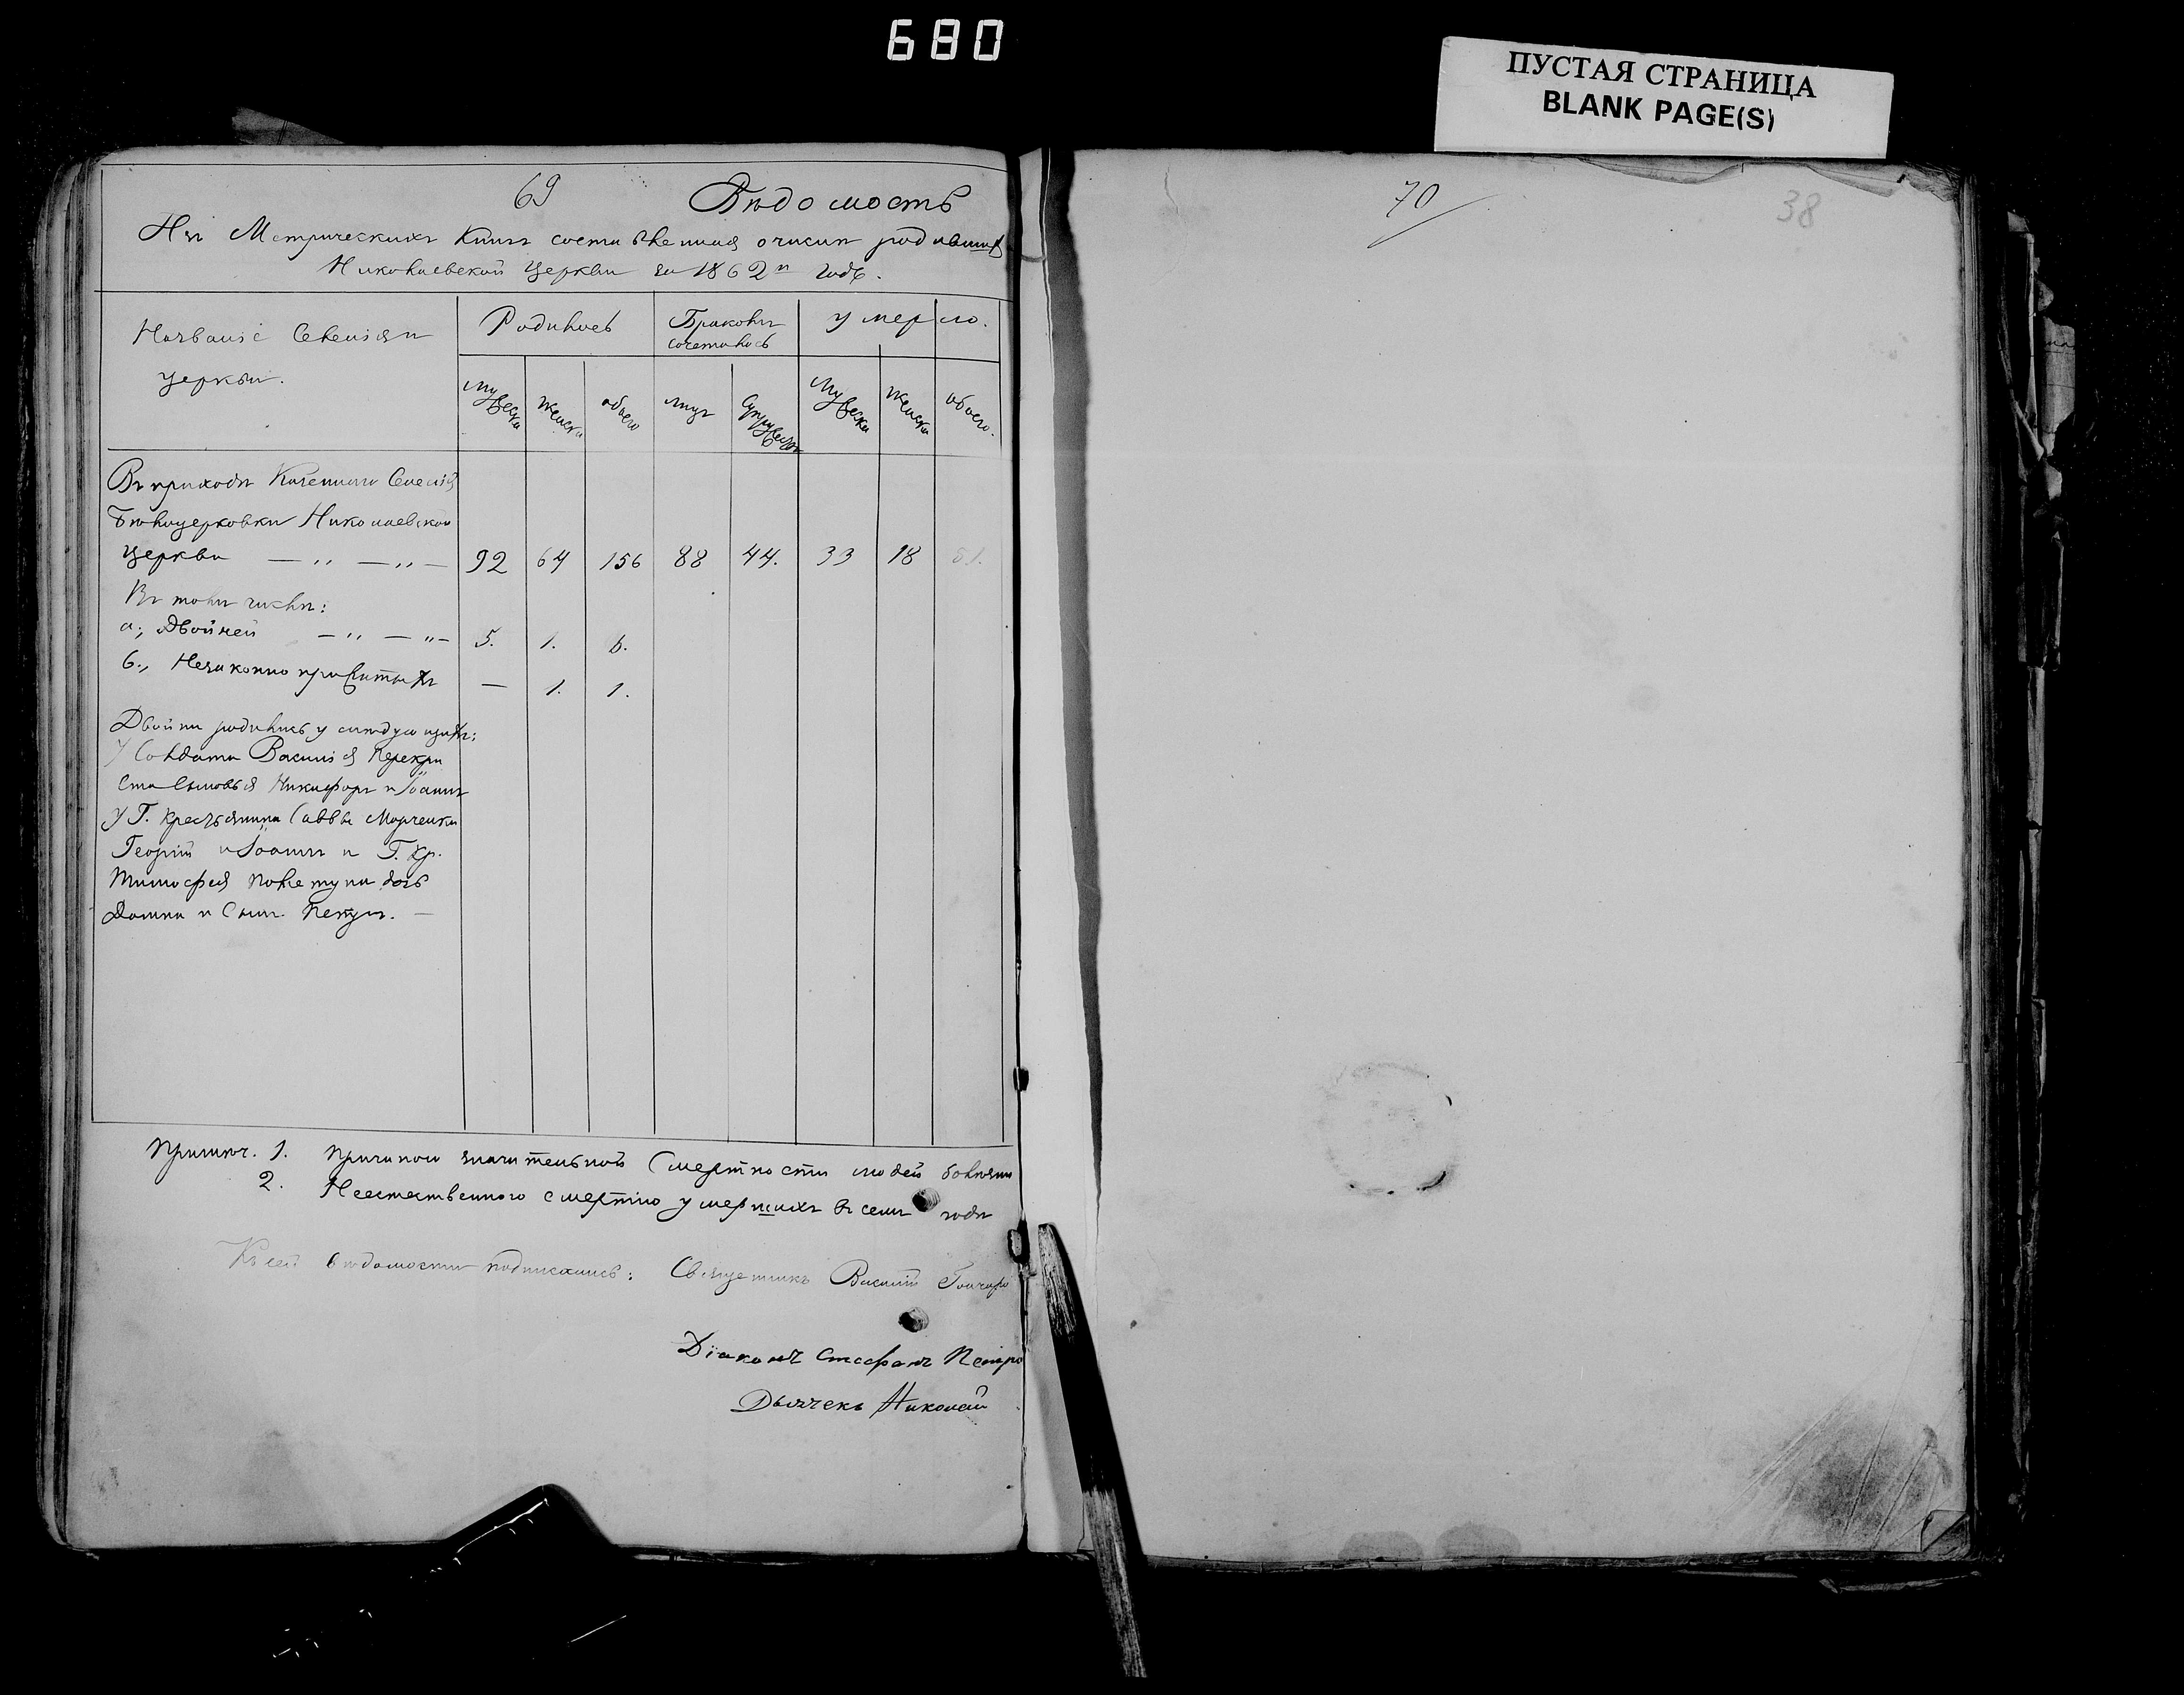 680
ПУСТАЯ СТРАНИЦА
BLANK PAGE(S)
69 Вѣдомость
Изъ Метрическихъ Книгъ составленная о числѣ родивших
Николаевской Церкви за 1862й годъ.
Названіе Селенія и церкви.
Родилось
Бракомъ сочеталось
умерло.
Мужеска
Женска
обоего
лицъ
Супружествъ
Мужеска
Женска
обоего.
Въ приходѣ Казеннаго Селенія
Бѣлоцерковки Николаевской
Церкви — „ — „ — 92 64 156 88 44. 33 18 51.
Въ томъ числѣ:
а., Двойней — „ — „ — 5. 1. 6.
б., Незаконно прижитыхъ — 1. 1.
Двойни родились у слѣдующихъ:
У Солдата Василія Перекри
ста Сыновья Никифоръ и Іоаннъ
у Г. Крестьянина Саввы Марченка
Георгій и Іоаннъ и Г. Кр.
Тимофея дочь
и Сынъ Петръ. —
Примѣч. 1. Причиною значительной Смертности людей болѣзни
2. Неестественного смертію умершихъ въ семъ годѣ
Къ сей вѣдомости подписались: Священникъ Василій Гончаро
Діаконъ Стефанъ Петро
Дьячекъ Николай
70
38